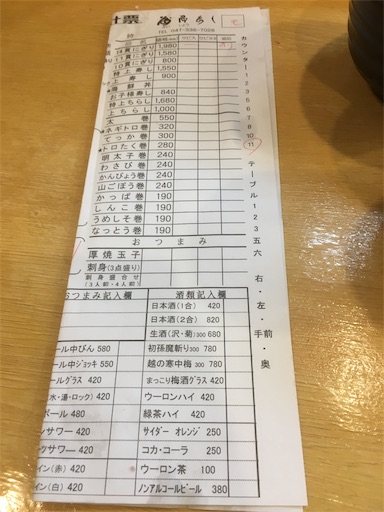 計票
TEL 047-336-7029
品名 価格
14貫にぎり 1,980
11貫にぎり 1,580
10貫にぎり 1,550
特上寿し
上寿し 900
海鮮丼
お子様寿し 840
特上ちらし 1,680
上ちらし 1,000
太巻 550
ネギトロ巻 320
てっか巻 300
トロたく巻 280
明太子巻 240
わさび巻 240
かんぴょう巻 240
山ごぼう巻 240
かっぱ巻 190
しんこ巻 190
うめしそ巻 190
なっとう巻 190
おつまみ
厚焼玉子
刺身(3点盛り)
刺身盛合せ
(3人前・4人前)
カウンター 1 2 3 5 6 7 8 10 11
テーブル 1 2 3 五 六
右・左・手前・奥
おつまみ記入欄 酒類記入欄
日本酒(1合) 420
日本酒(2合) 820
生酒(沢・菊)300 680
ール中びん 580 初孫魔斬り300 780
ール中ジョッキ 550 越の寒中梅 300 780
ールグラス 420 まっこり梅酒グラス 420
(水・湯・ロック) 420 ウーロンハイ 420
ボール 480 緑茶ハイ 420
ンサワー 420 サイダー オレンジ 250
ツサワー 420 コカ・コーラ 250
イン(赤) 420 ウーロン茶 100
イン(白) 420 ノンアルコールビール 380